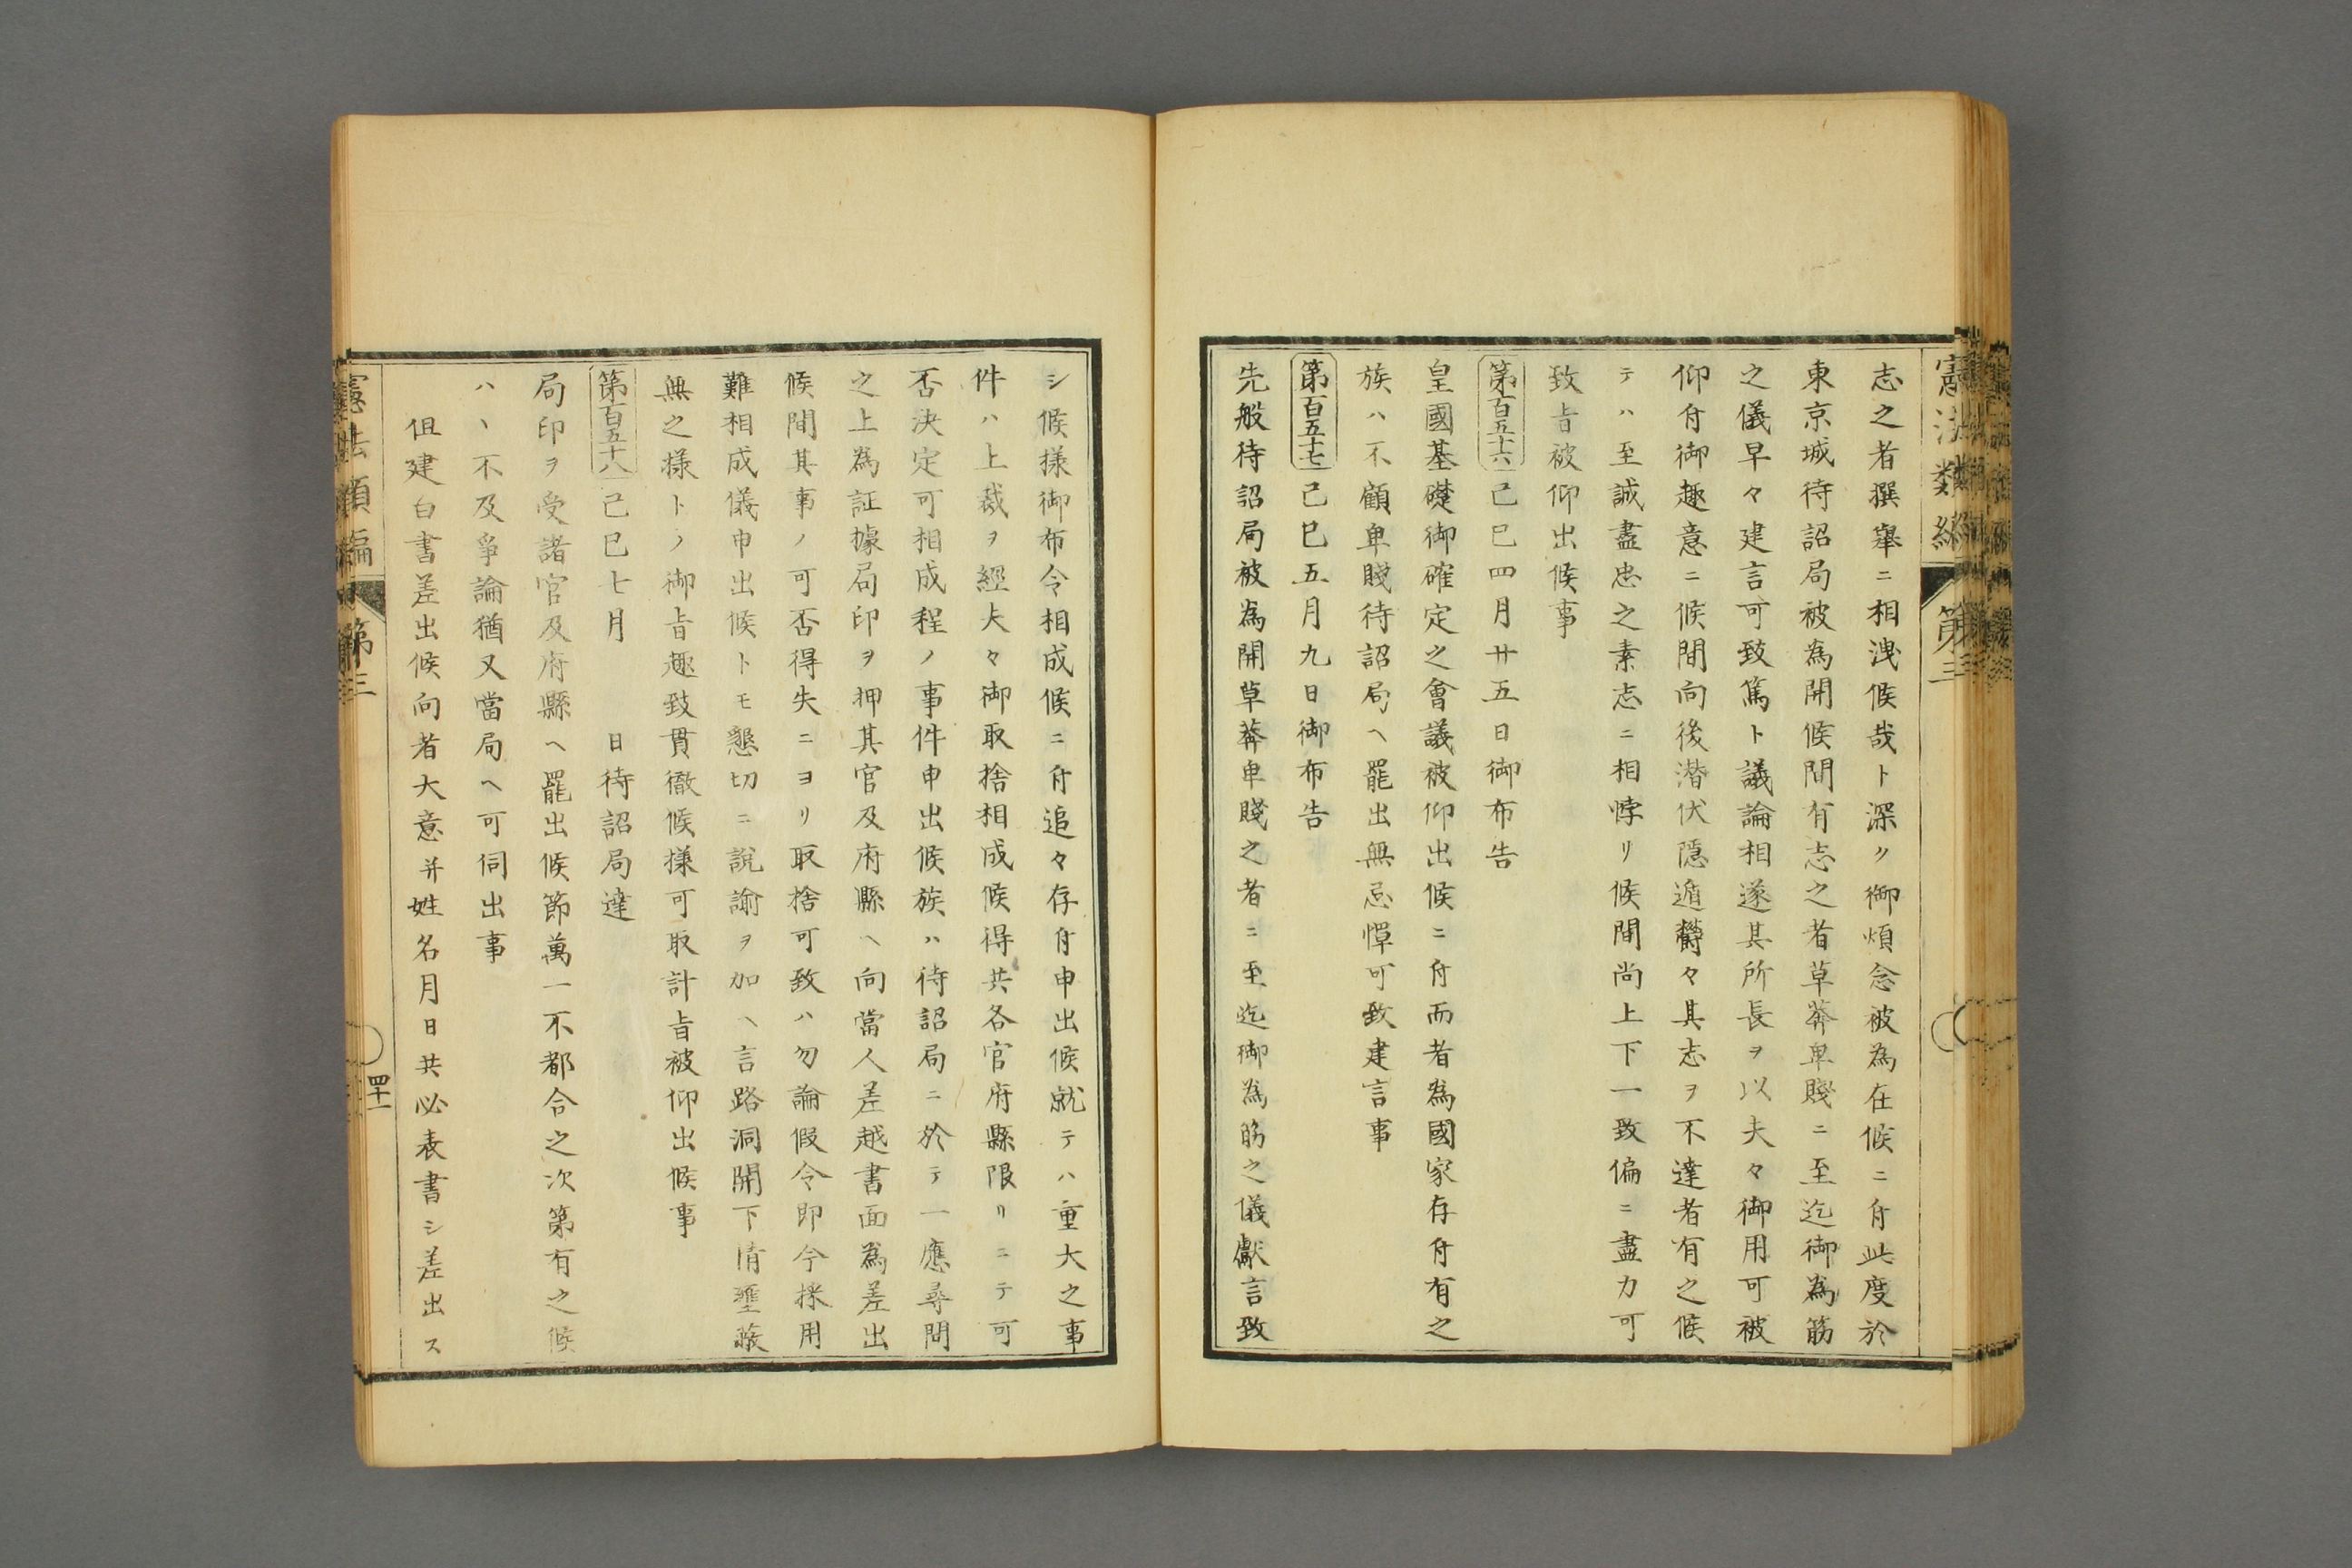 憲法類編　第三
志之者撰擧ニ相洩候哉ト深ク御煩念被為在候ニ付此度於
東京城待詔局被為開候間有志之者草莽卑賤ニ至迄御為筋
之儀早々建言可致篤ト議論相遂其所長ヲ以夫々御用可被
仰付御趣意ニ候間向後潜伏隠遁欝々其志ヲ不達者有之候
テハ至誠盡忠之素志ニ相悖リ候間尚上下一致偏ニ盡力可
致旨被仰出候事
第百五十六己巳四月廿五日御布告
皇國基礎御確定之會議被仰出候ニ付而者為國家存付有之
族ハ不顧卑賤待詔局ヘ罷出無忌憚可致建言事
第百五十七己巳五月九日御布告
先般待詔局被為開草莽卑賤之者ニ至迄御為筋之儀獻言致
シ候様御布令相成候ニ付追々存付申出候就テハ重大之事
件ハ上裁ヲ經夫々御取捨相成候得共各官府縣限リニテ可
否決定可相成程ノ事件申出候族ハ待詔局ニ於テ一應尋問
之上為証據局印ヲ押其官及府縣ヘ向當人差越書面為差出
候間其事ノ可否得失ニヨリ取捨可致ハ勿論假令即今採用
難相成儀申出候トモ懇切ニ說諭ヲ加ヘ言路洞開下情壅蔽
無之様トノ御旨趣致貫徹候様可取計旨被仰出候事
第百五十八己巳七月　　日待詔局達
局印ヲ受諸官及府縣ヘ罷出候節萬一不都合之次第有之候
ハヽ不及爭論猶又當局ヘ可伺出事
但建白書差出候向者大意并姓名月日共必表書シ差出ス
憲法類編　第三　四十一